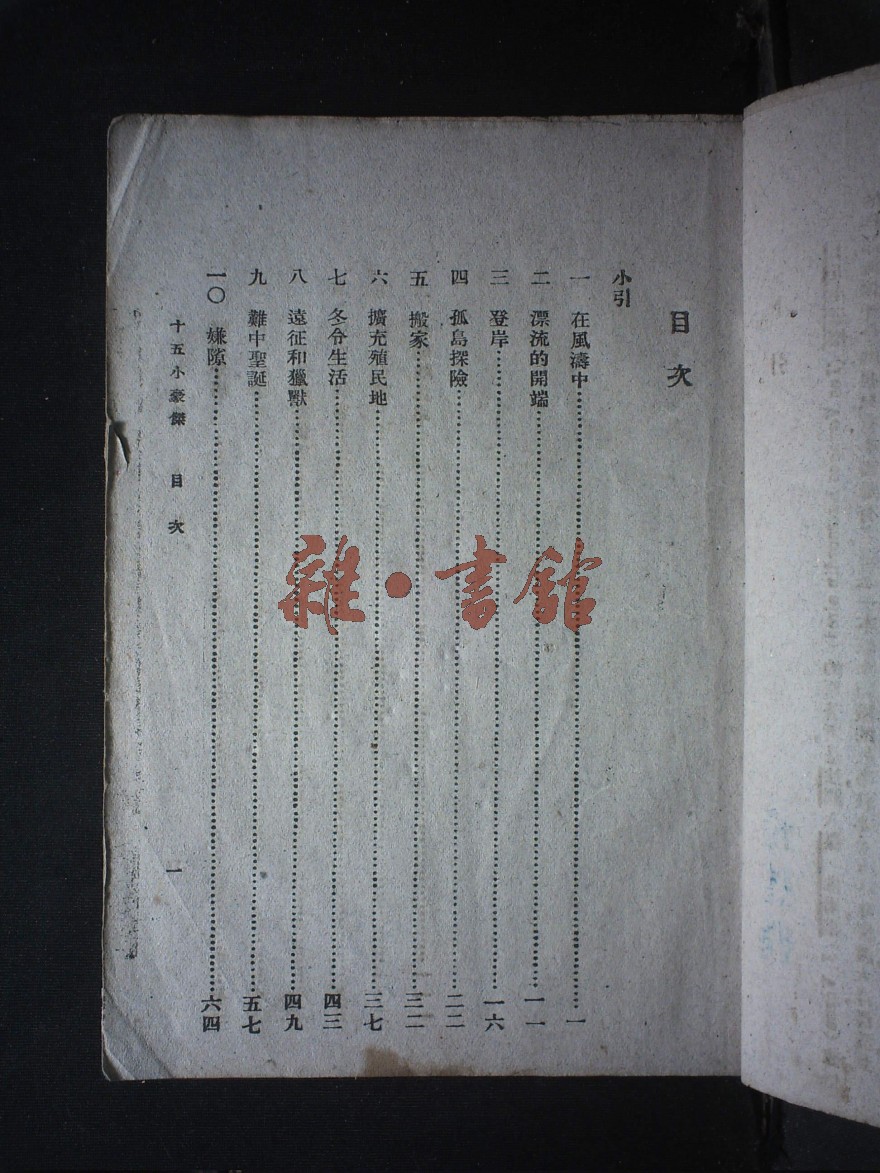 目次
小引
一 在風濤中……一
二 漂流的開端……一一
三 登岸……一六
四 孤島探險……二二
五 搬家……三二
六 擴充殖民地……三七
七 冬令生活……四三
八 遠征和獵獸……四九
九 難中聖誕……五七
一〇 嫌隙……六四
十五小豪傑 目次 一
雜·書館